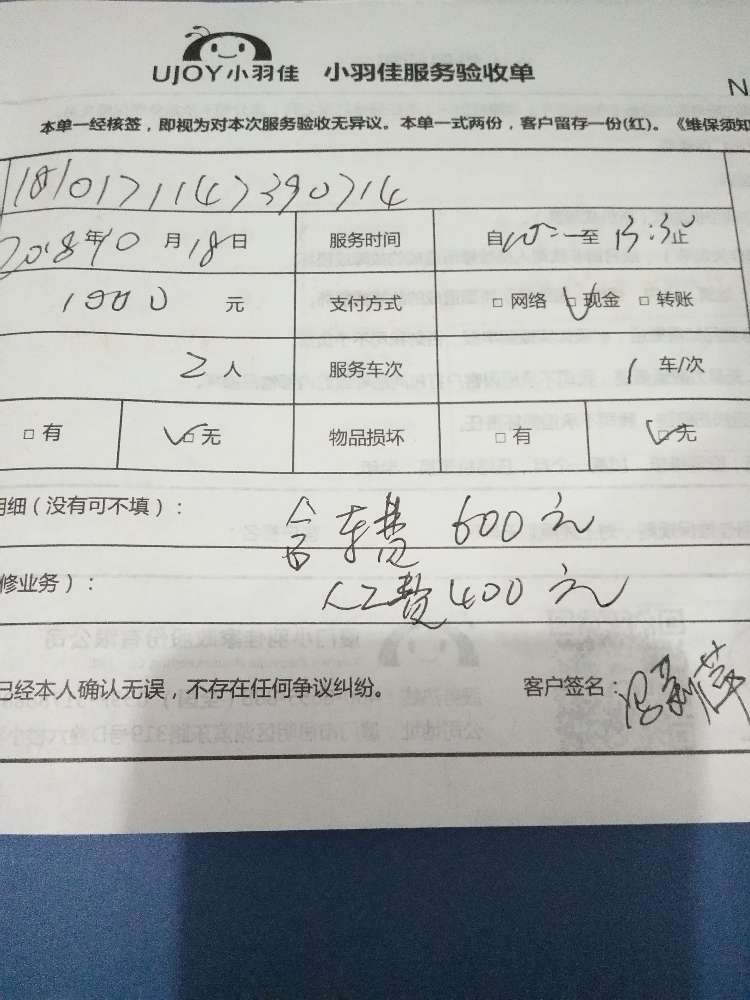 UJOY小羽佳 小羽佳服务验收单
N
本单一经核签，即视为对本次服务验收无异议。本单一式两份，客户留存一份(红)。《维保须知
1810171147390714
2018年10月18日 服务时间 自 至 13:30止
1000 元 支付方式 □ 网络 □ 现金 □ 转账
2 人 服务车次 1 车/次
□ 有 □ 无 物品损坏 □ 有 □ 无
明细（没有可不填）： 含车费 600元
修业务）： 人工费400元
已经本人确认无误，不存在任何争议纠纷。 客户签名：